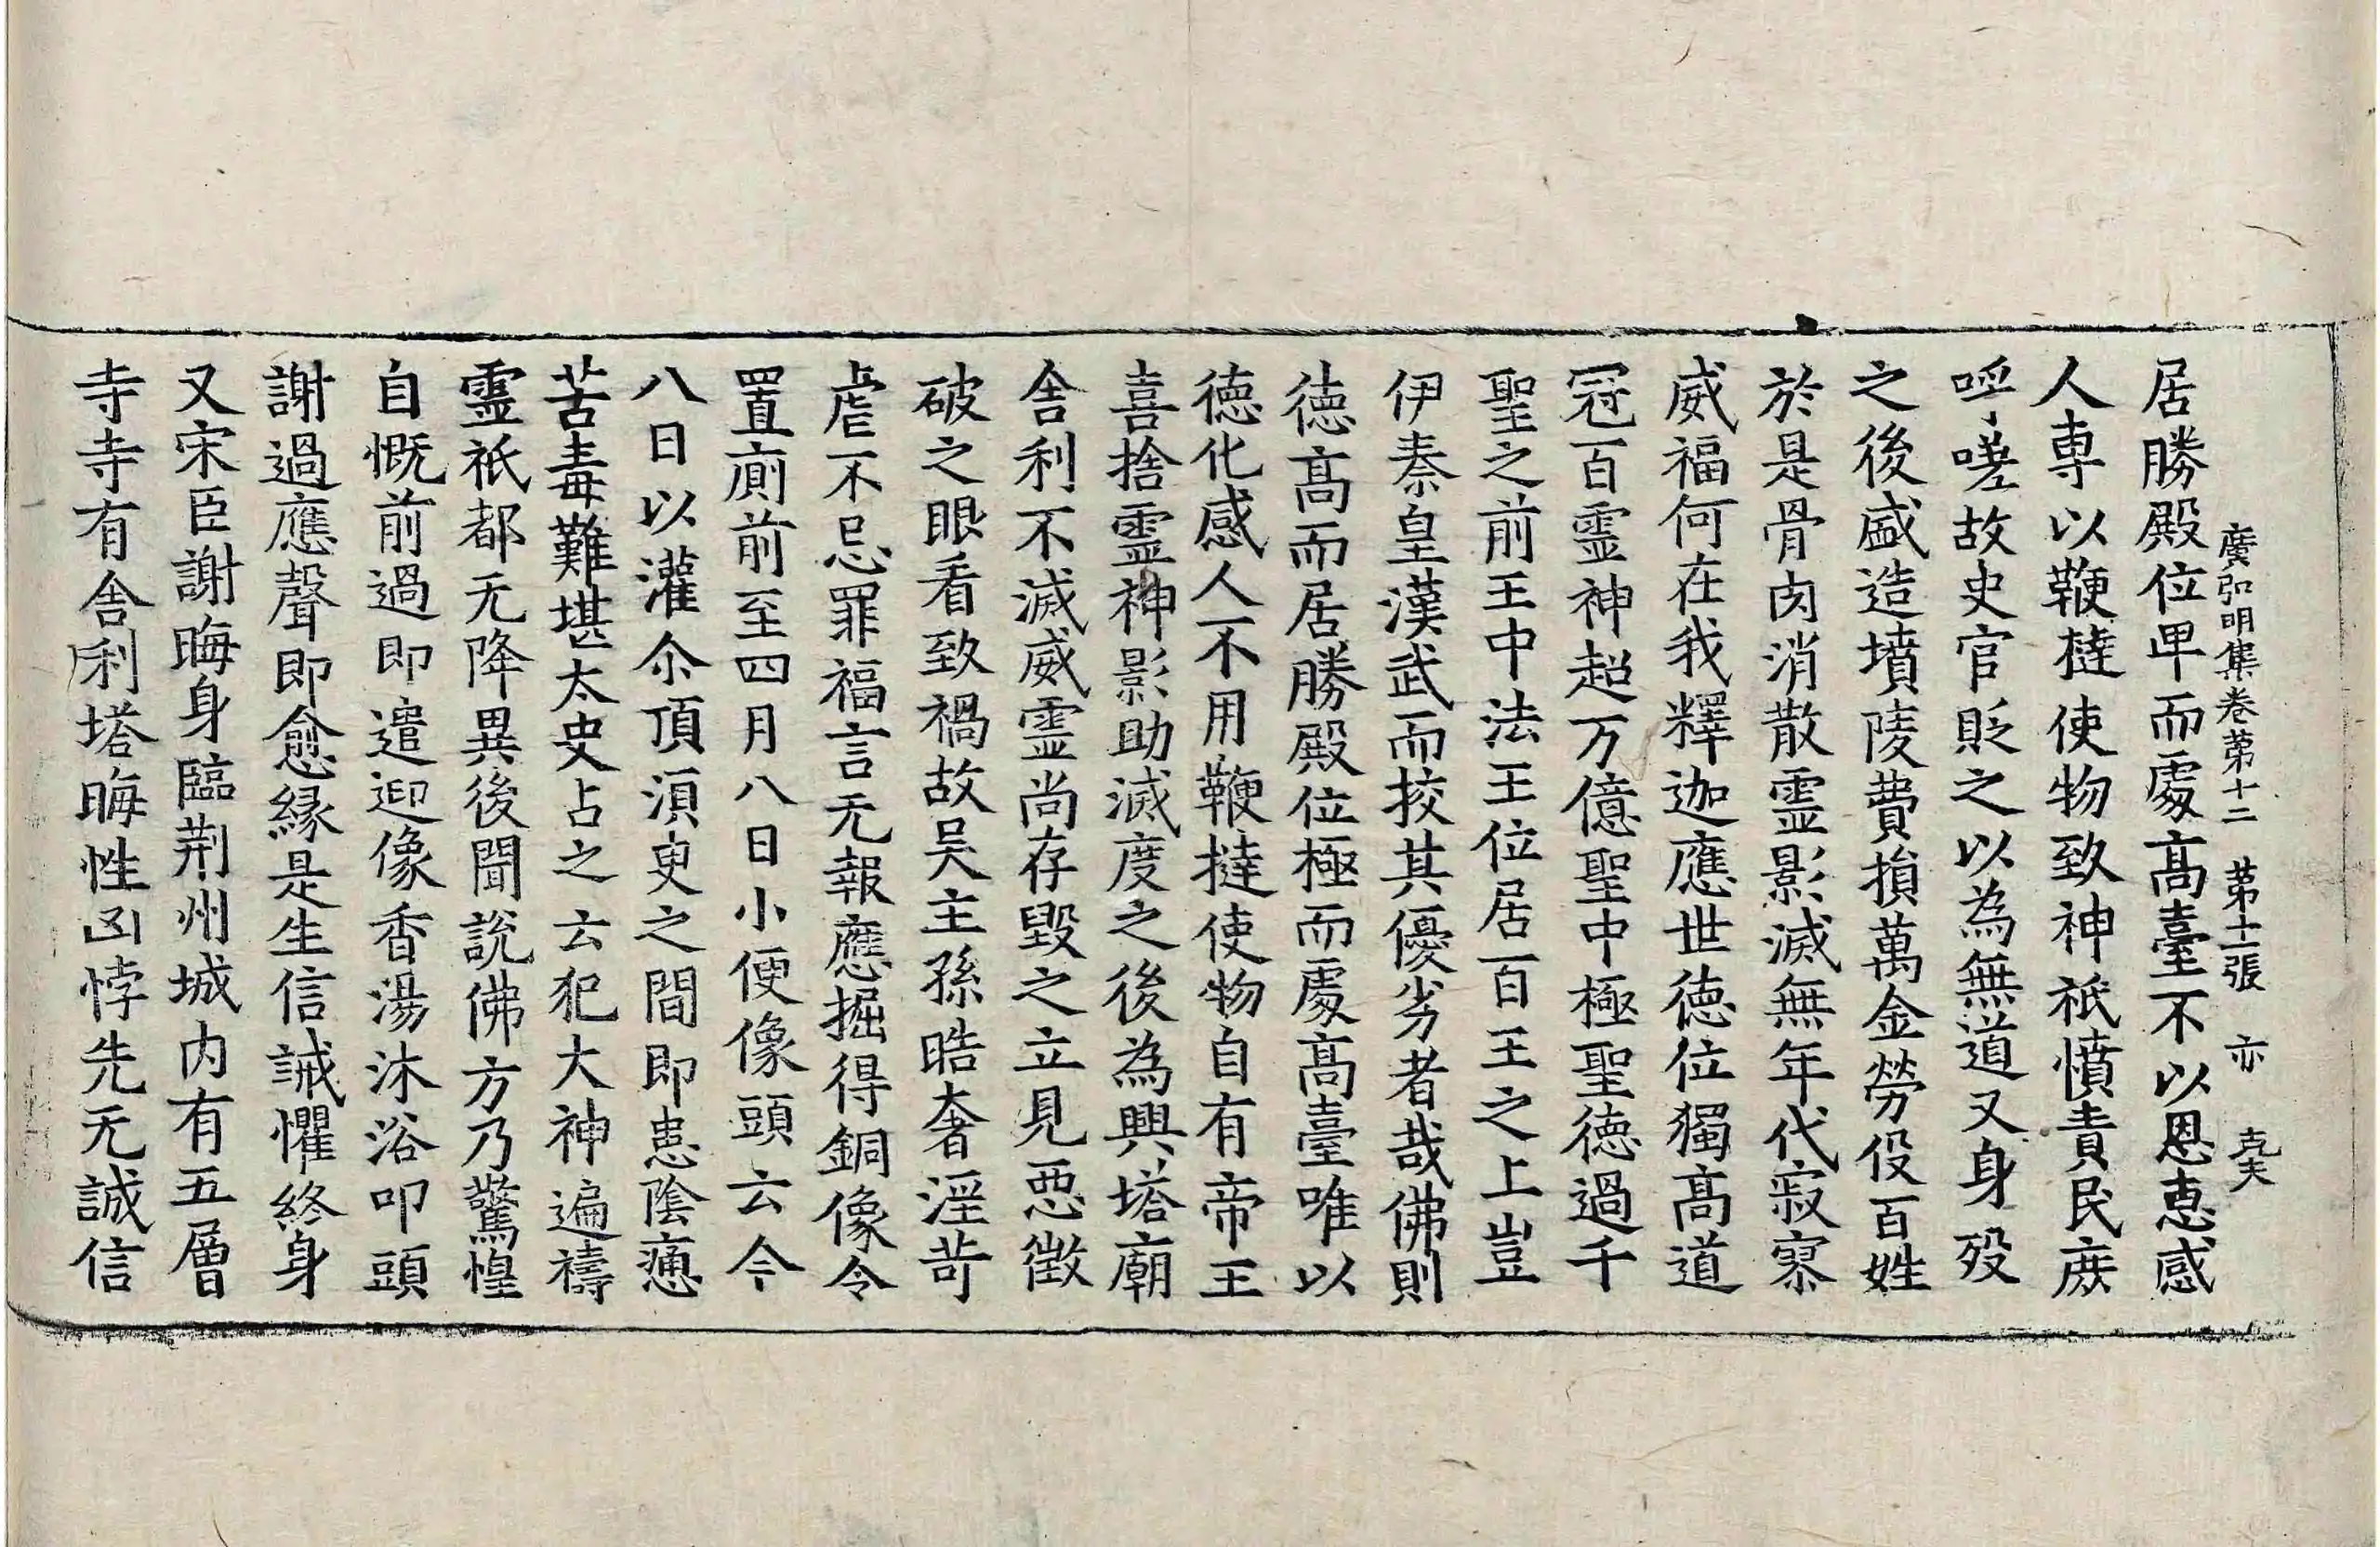 廣弘明集卷苐十二　苐十二張　亦　克夫
居勝殿位卑而處髙臺不以恩恵感
人專以鞭撻使物致神祇憤責民庻
呼嗟故史官貶之以為無道又身殁
之後盛造墳陵費損萬金勞役百姓
於是骨肉消散霊影滅無年代寂寥
威福何在我釋迦應世徳位獨髙道
冠百霊神超万億聖中極聖徳過千
聖之前王中法王位居百王之上豈
伊秦皇漢武而挍其優劣者哉佛則
徳髙而居勝殿位極而處髙臺唯以
徳化感人不用鞭撻使物自有帝王
喜捨霊神影助滅度之後為興塔廟
舎利不滅威霊尚存毀之立見惡徴
破之眼看致禍故吴主孫晧奢淫苛
虐不忌罪福言无報應掘得銅像令
置廁前至四月八日小便像頭云今
八日以灌尒頂湏臾之間即患陰㾮
苦毒難堪太史占之云犯大神遍禱
霊祇都无降異後聞說佛方乃驚惶
自慨前過即遣迎像香湯沐浴叩頭
謝過應聲即愈縁是生信誡懼終身
又宋臣謝晦身臨荆州城内有五層
寺寺有舎利塔晦性凶悖先无誠信